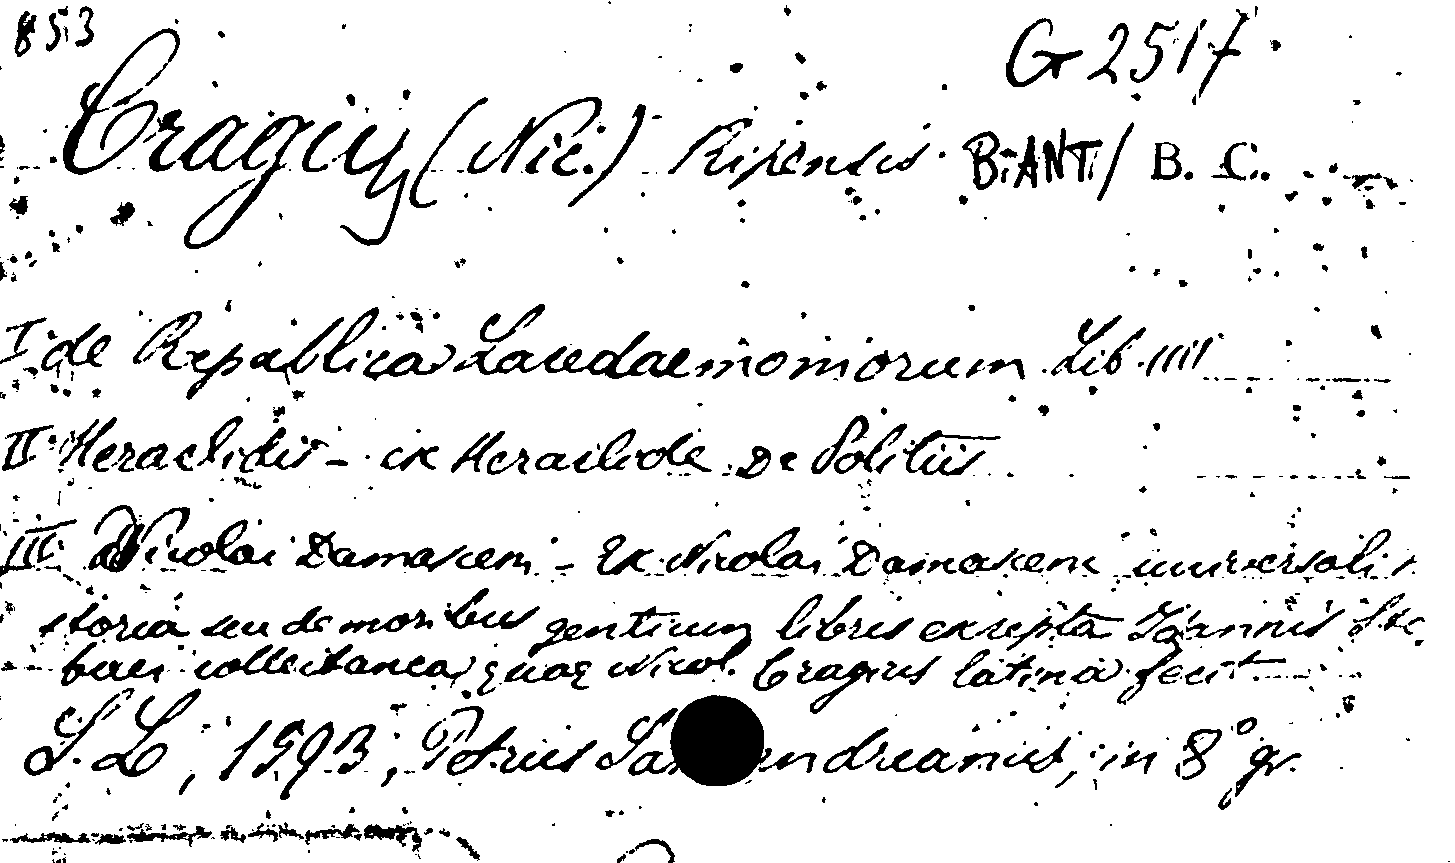 853
G 2517
Cragius (Nic.) Ripensis. BiANT/ B. C.
I de Republica Lacedaemoniorum Lib. IIII
II Heraclidis - ex Heraclide De Politiis
III Nicolai Damasceni - Ex Nicolai Damasceni universali
storia seu de moribus gentium libris excepta Ioannis Sto
baei collectanea, quae Nicol. Cragius latina fecit
S. L, 1593, Petrus San ndreanus, in 8° gr.